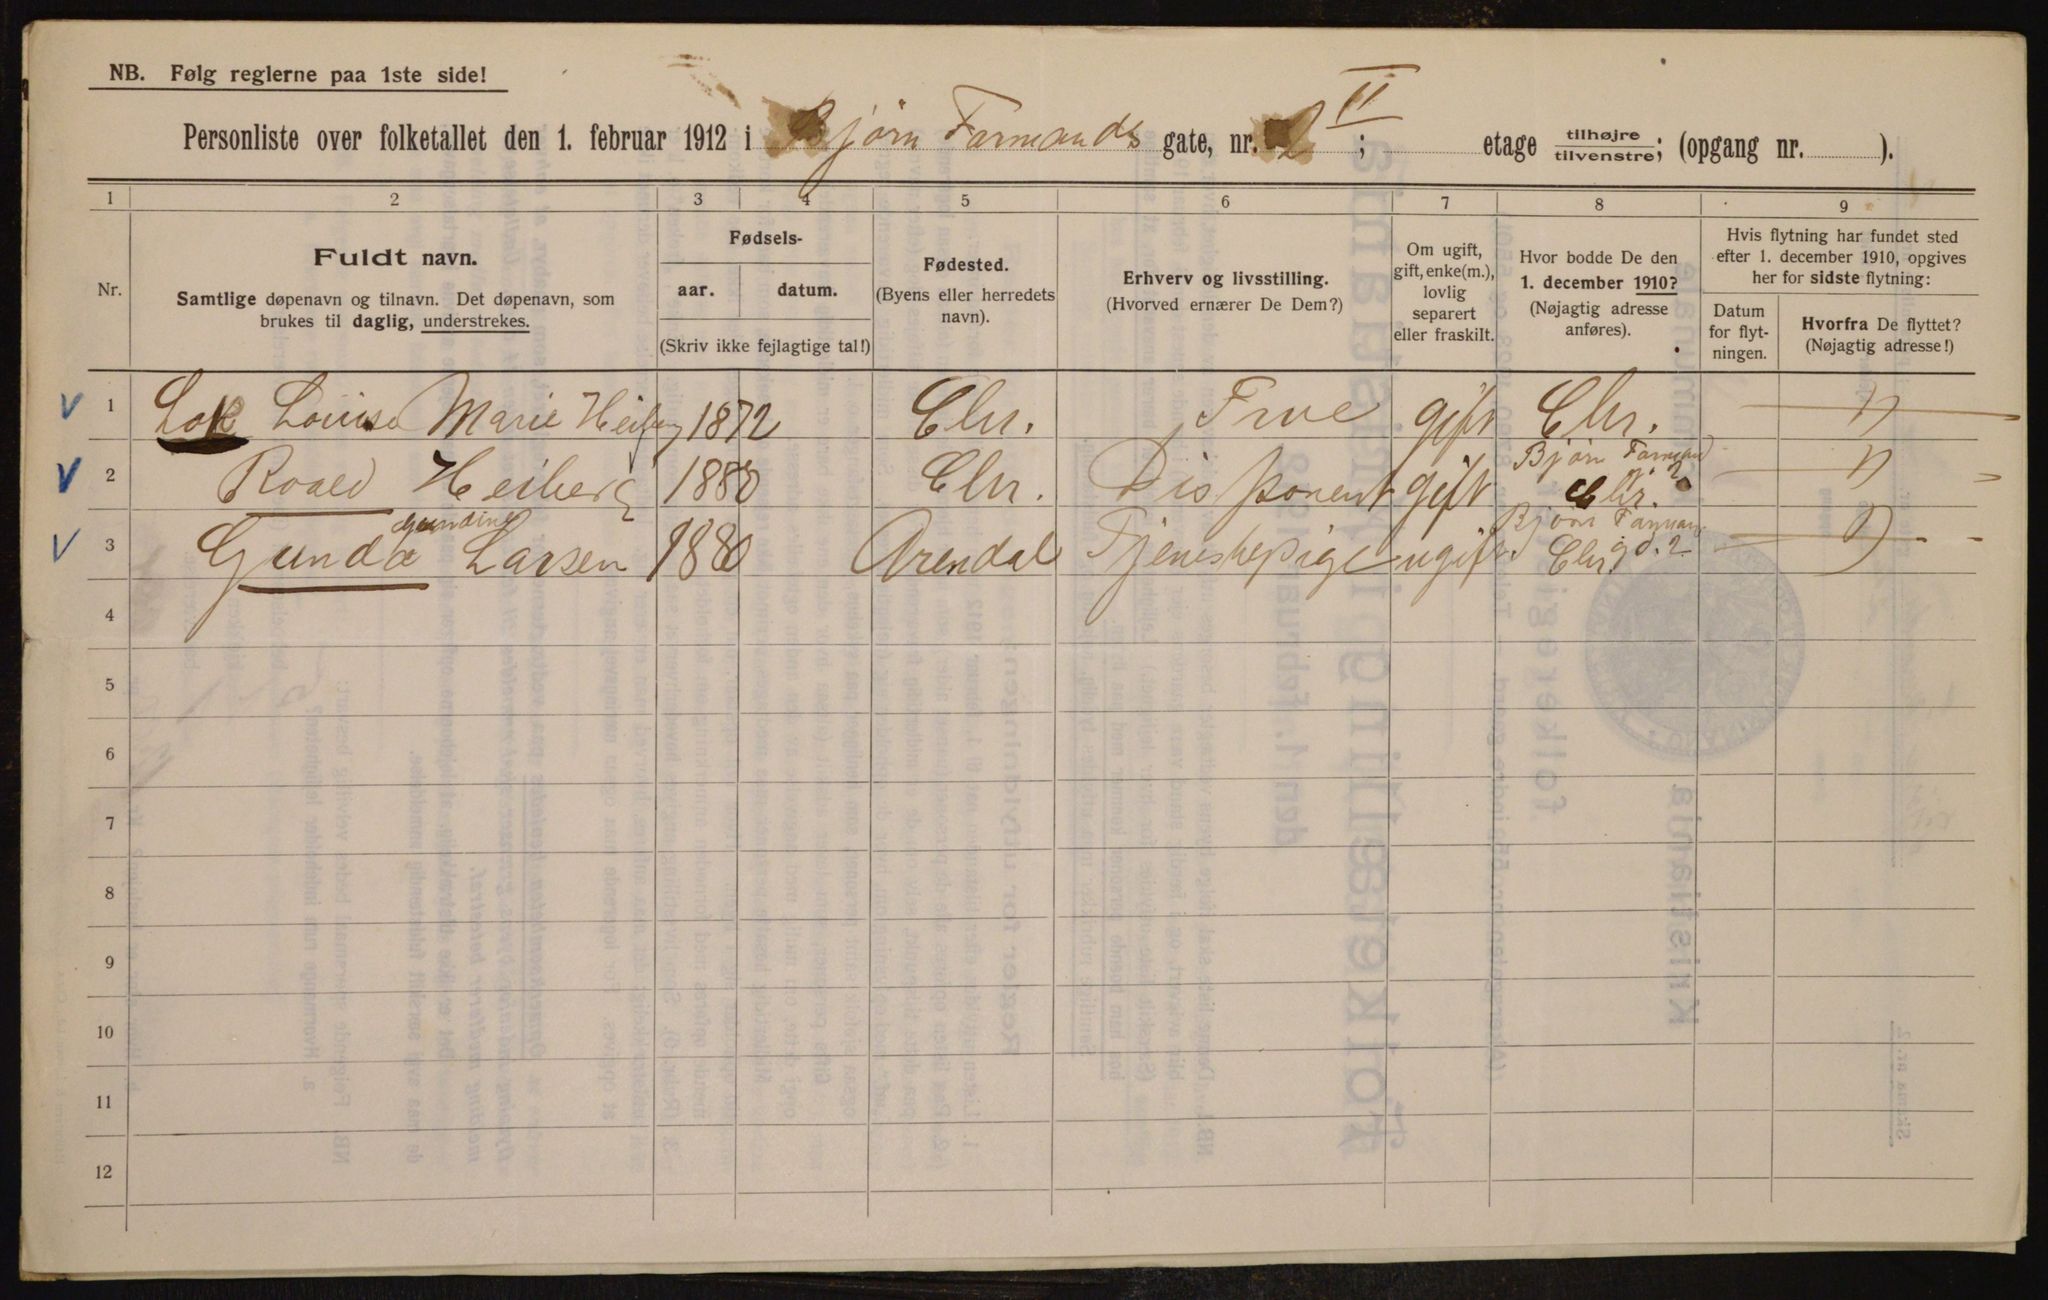 NB. Følg reglerne paa 1ste side!
Personliste over folketallet den 1. februar 1912 i Bjørn Farmands gate, nr. 2 II ; etage tilhøjre/tilvenstre; (opgang nr. ).
1 2 3 4 5 6 7 8 9
Nr.
Fuldt navn.
Samtlige døpenavn og tilnavn. Det døpenavn, som
brukes til daglig, understrekes.
Fødsels-
aar. datum.
(Skriv ikke fejlagtige tal!)
Fødested.
(Byens eller herredets
navn).
Erhverv og livsstilling.
(Hvorved ernærer De Dem?)
Om ugift,
gift, enke(m.),
lovlig
separert
eller fraskilt.
Hvor bodde De den
1. december 1910?
(Nøjagtig adresse
anføres).
Hvis flytning har fundet sted
efter 1. december 1910, opgives
her for sidste flytning:
Datum
for flyt-
ningen.
Hvorfra De flyttet?
(Nøjagtig adresse!)
1 Louise Marie Heiberg 1872 Chr. Frue gift Chr.
Bjørn Farmand
2 Roald Heiberg 1880 Chr. Disponent gift Chr. 2
Gundine Bjørn Farman
3 Gunda Larsen 1880 Arendal Tjenestepige ugift Chr. gd. 2
4
5
6
7
8
9
10
11
12